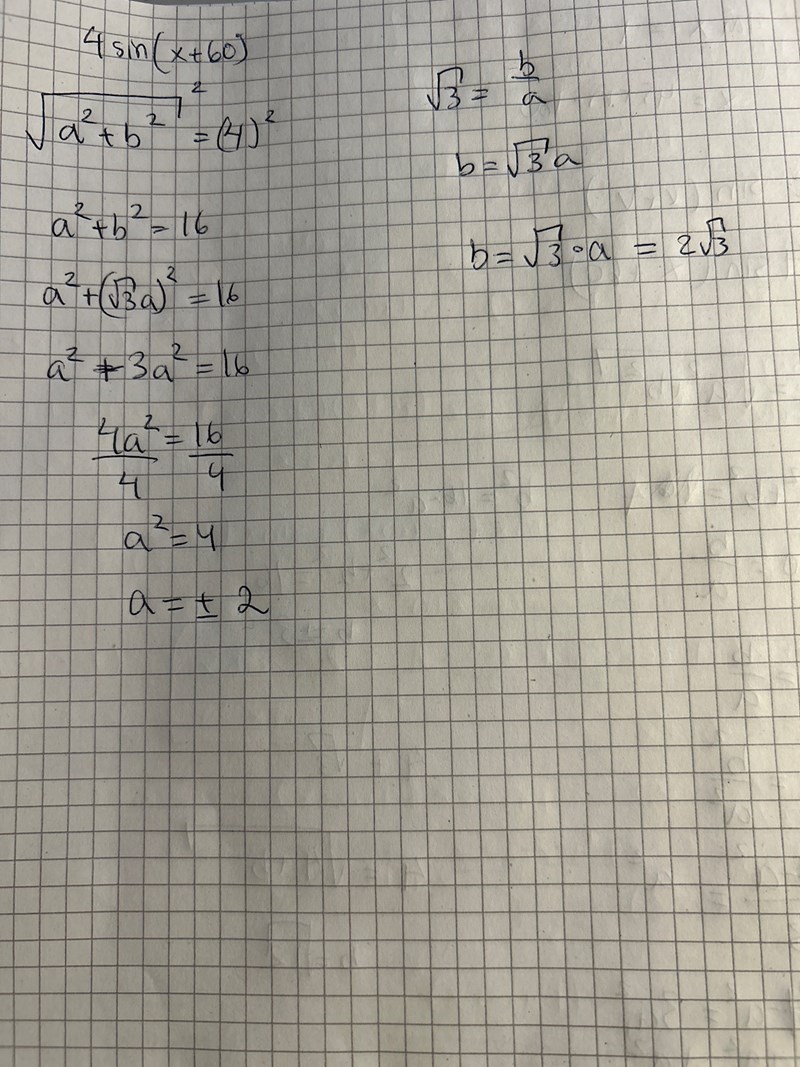 4 sin(x+60)
√(a²+b²)² = (4)²
a²+b² = 16
a²+(√3a)² = 16
a² + 3a² = 16
4a²/4 = 16/4
a² = 4
a = ± 2
√3 = b/a
b = √3 a
b = √3 · a = 2√3